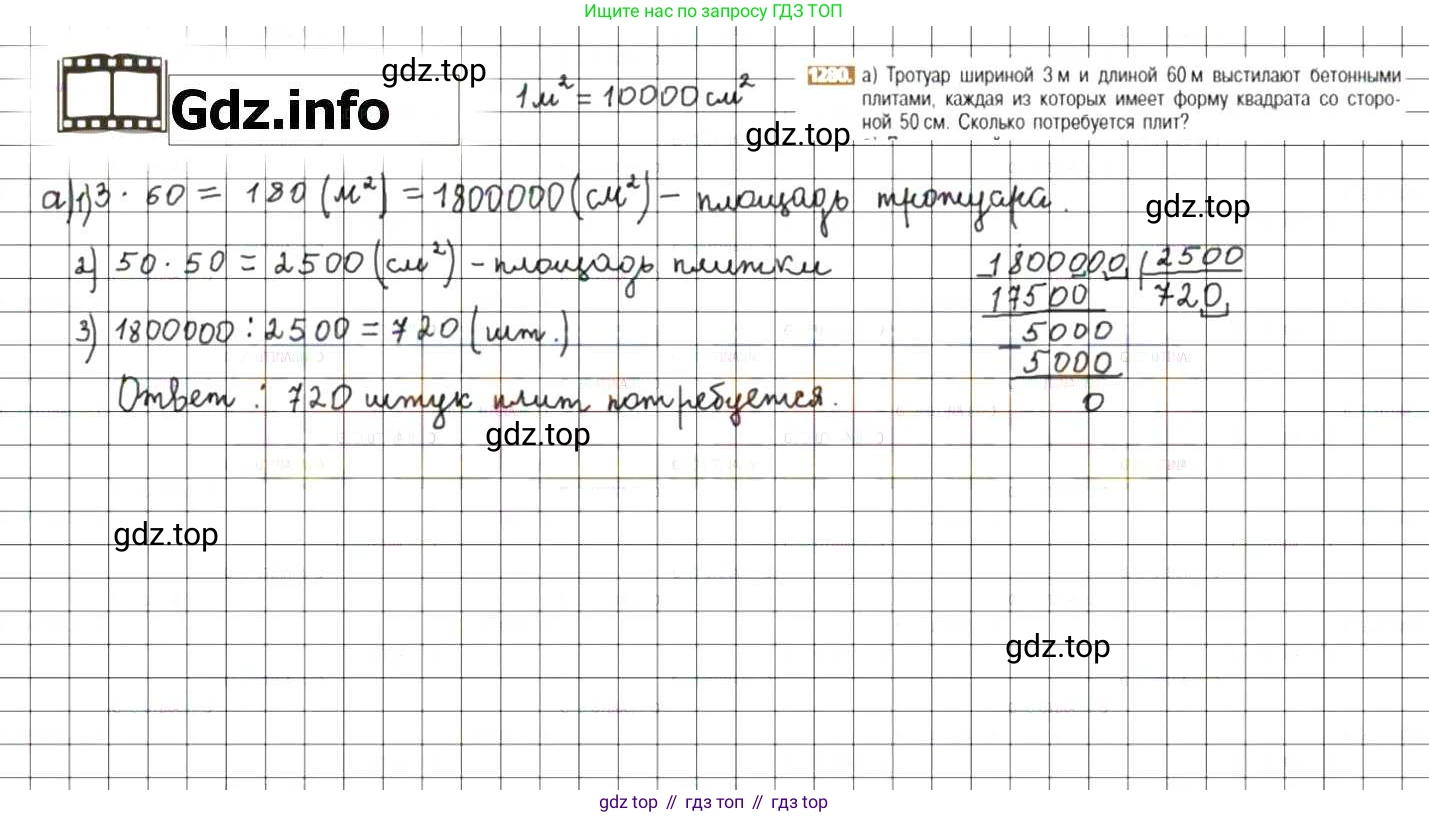 Ищите нас по запросу ГДЗ ТОП
gdz.top
Gdz.info
1 м² = 10000 см²
gdz.top
1280. а) Тротуар шириной 3 м и длиной 60 м выстилают бетонными
плитами, каждая из которых имеет форму квадрата со сторо-
ной 50 см. Сколько потребуется плит?
а) 1) 3 · 60 = 180 (м²) = 1800000 (см²) – площадь тротуара.
gdz.top
2) 50 · 50 = 2500 (см²) – площадь плитки
3) 1800000 : 2500 = 720 (шт.)
Ответ: 720 штук плит потребуется.
1800000 2500
17500 720
5000
5000
0
gdz.top
gdz.top
gdz.top
gdz top // гдз топ // gdz top